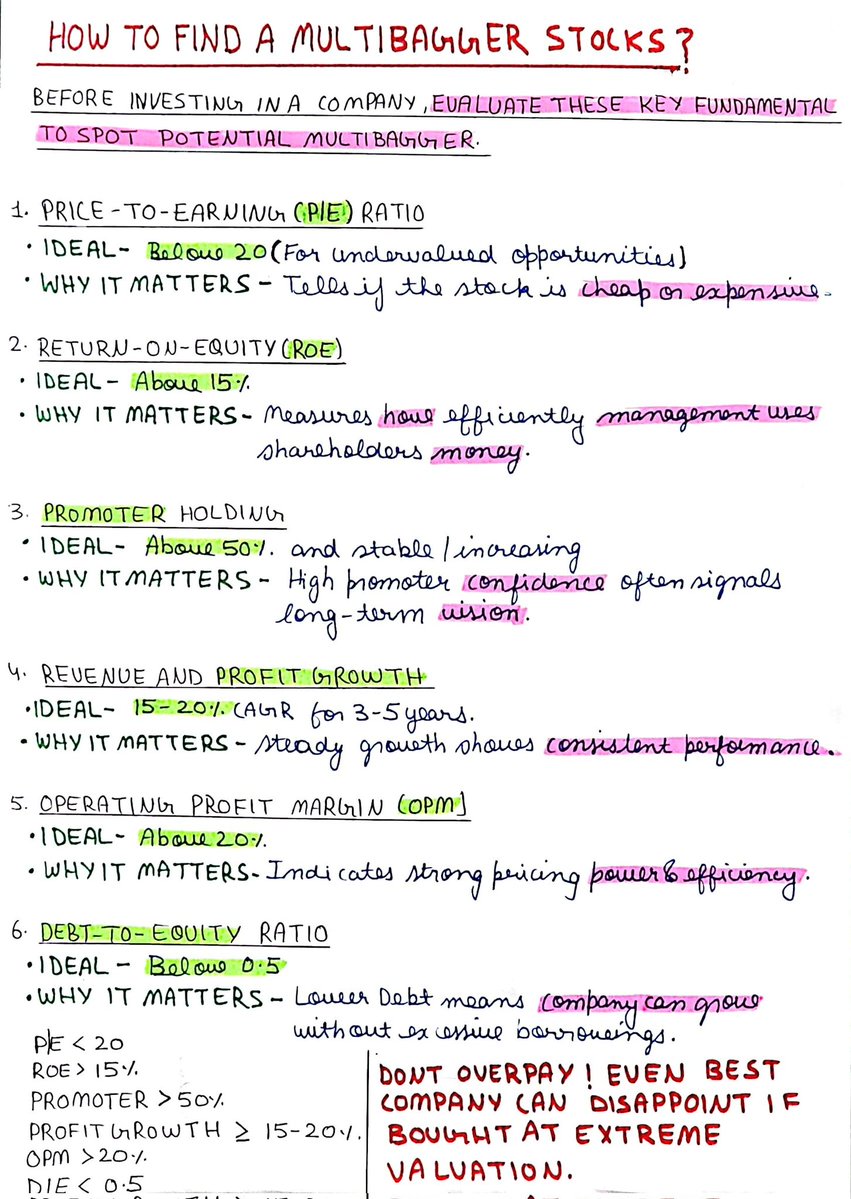 HOW TO FIND A MULTIBAGGER STOCKS?
BEFORE INVESTING IN A COMPANY, EVALUATE THESE KEY FUNDAMENTAL
TO SPOT POTENTIAL MULTIBAGGER.
1. PRICE-TO-EARNING (P/E) RATIO
• IDEAL- Below 20 (For undervalued opportunities)
• WHY IT MATTERS - Tells if the stock is cheap or expensive.
2. RETURN-ON-EQUITY (ROE)
• IDEAL- Above 15%
• WHY IT MATTERS- Measures how efficiently management uses
shareholders money.
3. PROMOTER HOLDING
• IDEAL- Above 50% and stable/increasing
• WHY IT MATTERS - High promoter confidence often signals
long-term vision.
4. REVENUE AND PROFIT GROWTH
• IDEAL- 15-20% CAGR for 3-5 years.
• WHY IT MATTERS - steady growth shows consistent performance.
5. OPERATING PROFIT MARGIN (OPM)
• IDEAL- Above 20%
• WHY IT MATTERS- Indicates strong pricing power & efficiency.
6. DEBT-TO-EQUITY RATIO
• IDEAL - Below 0.5
• WHY IT MATTERS - Lower Debt means company can grow
without excessive borrowings.
P/E < 20
ROE > 15%
PROMOTER > 50%
PROFIT GROWTH ≥ 15-20%.
OPM > 20%
D/E < 0.5
DONT OVERPAY! EVEN BEST
COMPANY CAN DISAPPOINT IF
BOUGHT AT EXTREME
VALUATION.